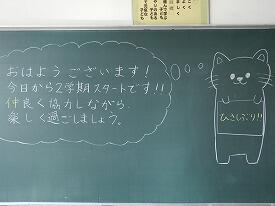 おはようございます!
今日から2学期スタートです!!
仲良く協力しながら
楽しく過ごしましょう。
ひさしぶり!!